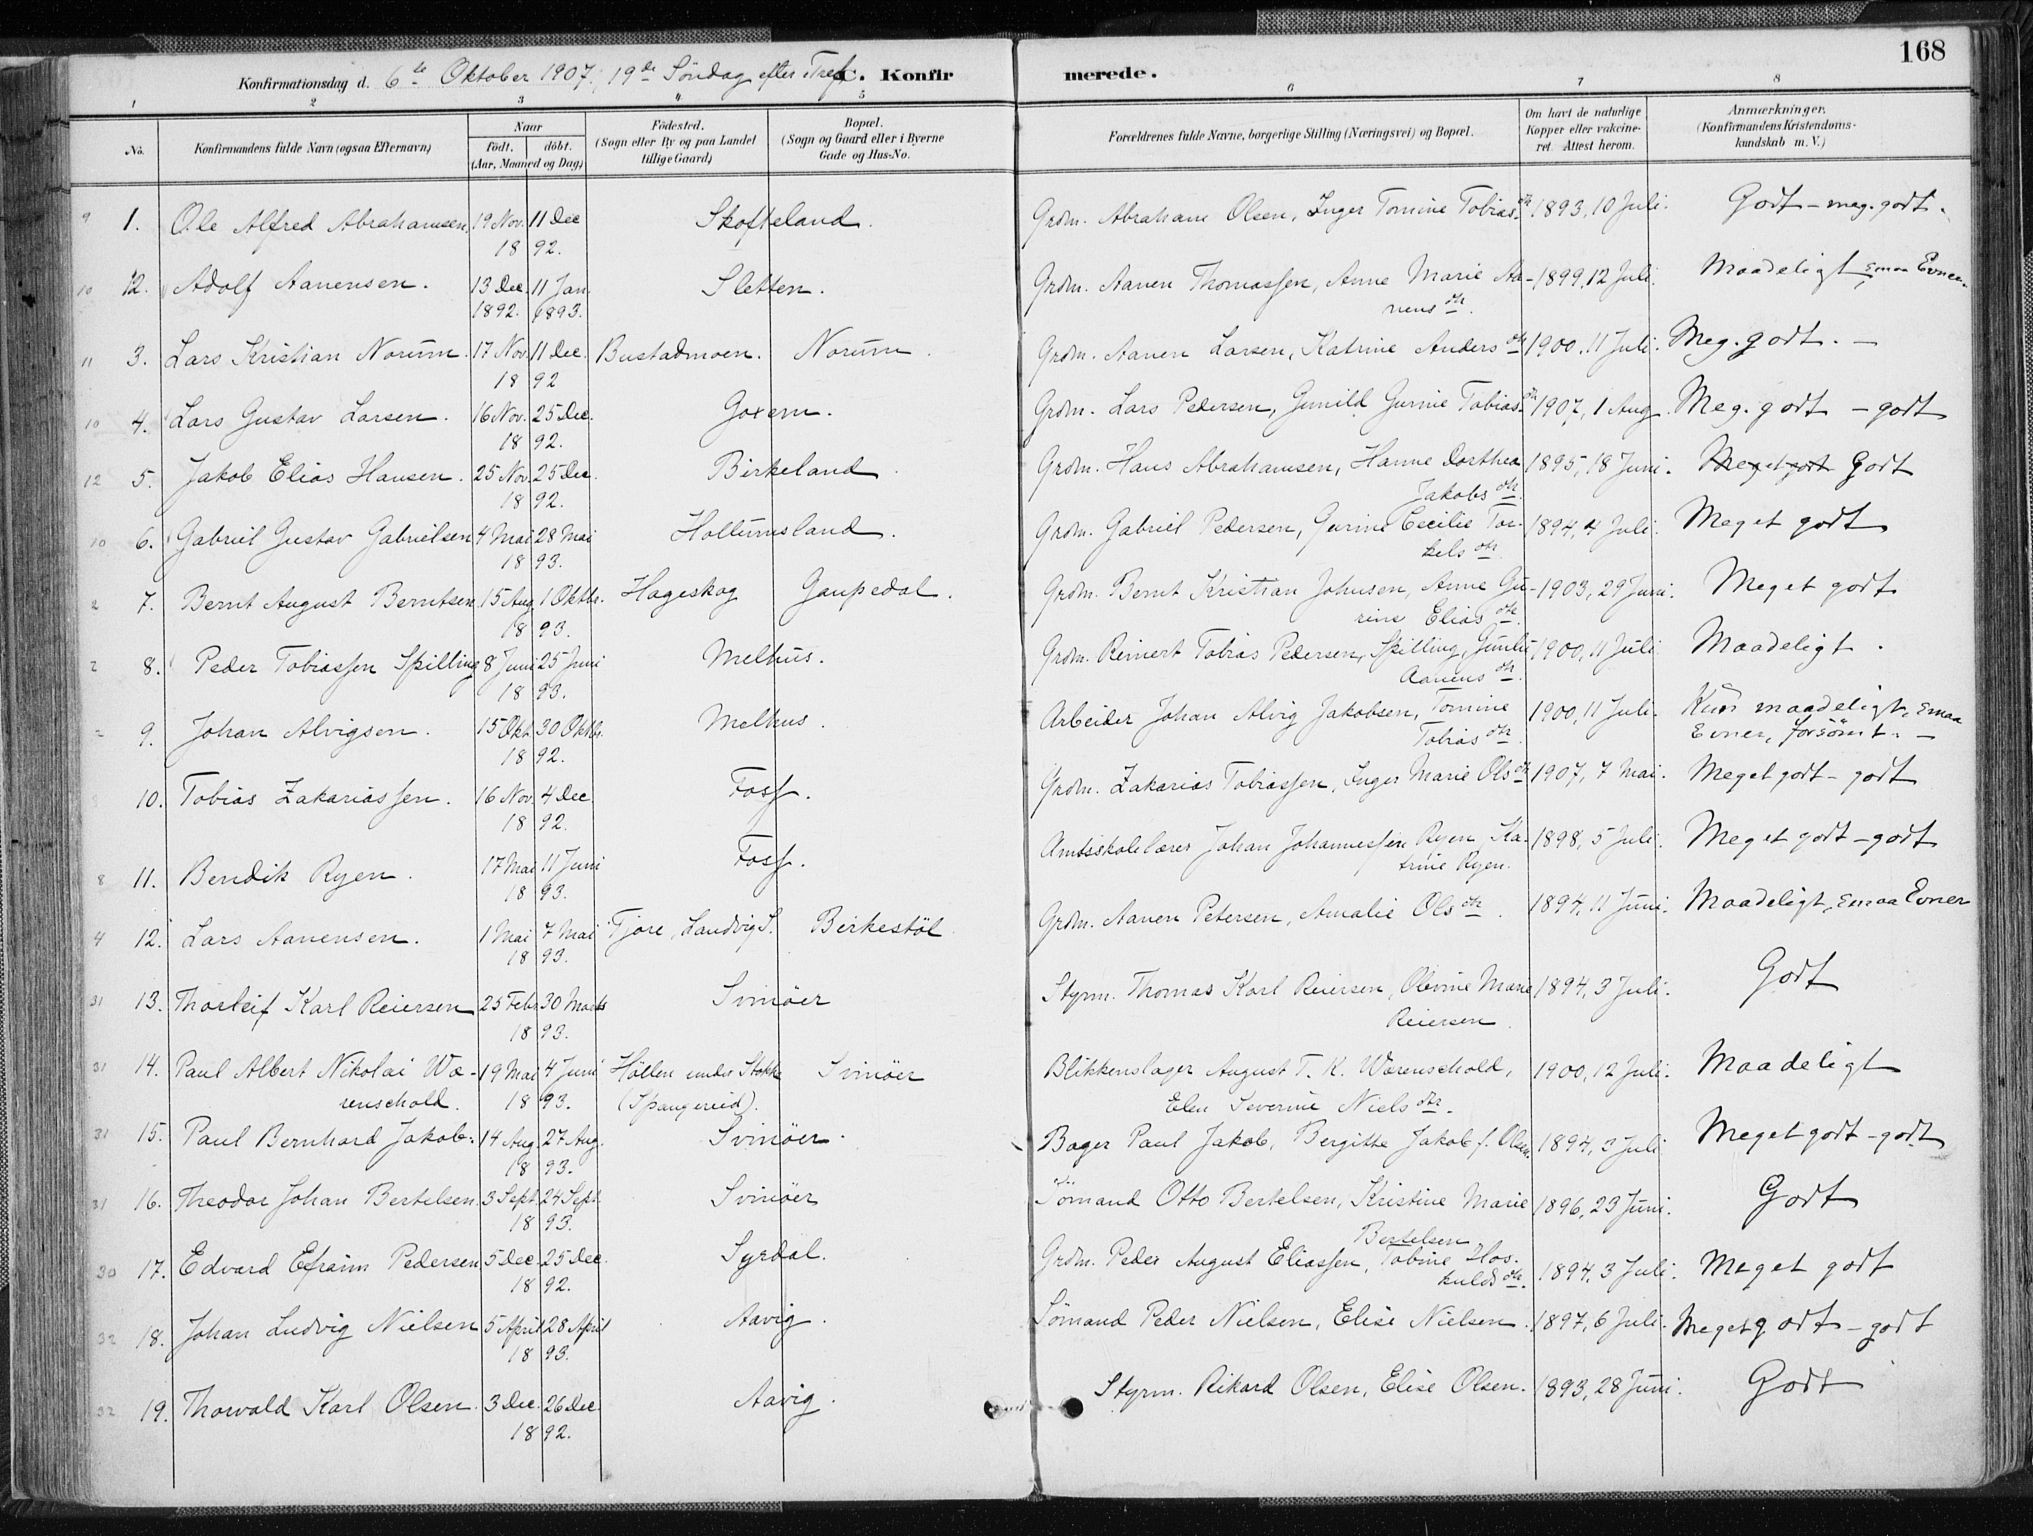 168
Konfirmationsdag d. 6te Oktober 1907, 19de Söndag efter Tref. C. Konfirmerede.
1 2 3 4 5 6 7 8
No. Konfirmandens fulde Navn (ogsaa Efternavn) Naar födt. döbt. (Aar, Maaned og Dag) Födested. (Sogn eller By og paa Landet tillige Gaard) Bopæl. (Sogn og Gaard eller i Byerne Gade og Hus-No. Forældrenes fulde Navne, borgerlige Stilling (Næringsvei) og Bopæl. Om havt de naturlige Kopper eller vakcineret. Attest herom. Anmærkninger. (Konfirmandens Kristendomskundskab m. V.)
9 1. Ole Alfred Abrahamsen 19 Nov. 11 Dec 1892. Skofteland. Grdm. Abraham Olsen, Inger Tomine Tobiasdtr 1893, 10 Juli. Godt - meg. godt.
10 2. Adolf Aanensen. 13 Dec. 1892. 11 Jan. 1893. Sletten. Grdm. Aanen Thomassen, Anne Marie Aanensdtr. 1899, 12 Juli. Maadeligt, smaa Evner.
11 3. Lars Kristian Norum. 17 Nov. 11 Dec. 1892 Bustadmoen. Norum. Grdm. Aanen Larsen, Katrine Andersdtr 1900, 11 Juli. Meg. godt. -
10 4. Lars Gustav Larsen. 16 Nov. 25 Dec. 1892. Goxem. Grdm. Lars Pedersen, Gunild Gurine Tobiasdtr 1907, 1 Aug. Meg. godt - godt
12 5. Jakob Elias Hansen. 25 Nov. 25 Dec. 1892. Birkeland. Grdm. Hans Abrahamsen, Hanne Dorthea Jakobsdtr. 1895, 18 Juni. Meget godt Godt
10 6. Gabriel Gustav Gabrielsen 4 Mai 28 Mai 1893. Hollumsland. Grdm. Gabriel Pedersen, Gurine Cecilie Torkelsdtr. 1894, 4 Juli. Meget godt
2 7. Bernt August Berntsen 15 Aug. 1 Oktbr. 1893. Hageskog Gaupedal. Grdm. Bernt Kristian Johnsen, Anne Gurine Eliasdtr. 1903, 29 Juni. Meget godt
2 8. Peder Tobiassen Spilling 8 Juni 25 Juni 1893. Melhus. Grdm. Reinert Tobias Pedersen, Spilling, Gunlie Aanensdtr. 1900, 11 Juli Maadeligt.
2 9. Johan Alvigsen. 15 Okt. 30 Oktbr. 1892. Melhus. Arbeider Johan Alvig Jakobsen, Tomine Tobiasdtr. 1900, 11 Juli. Kun maadeligt, smaa Evner, forsömt. -
10. Tobias Zakariassen. 16 Nov. 4 Dec. 1892. Foss. Grdm. Zakarias Tobiassen, Inger Marie Olsdtr 1907, 7 Mai. Meget godt - godt
8 11. Bendik Ryen. 17 Mai 11 Juni 1893. Foss. Amtsskolelærer Johan Johannessen Ryen Katrine Ryen. 1898, 5 Juli. Meget godt - godt
4 12. Lars Aanensen. 1 Mai 7 Mai 1893. Fjore, Landvig S. Birkestöl. Grdm. Aanen Petersen, Amalie Olsdtr. 1894, 11 Juni. Maadeligt, smaa Evner
31 13. Thorleif Karl Reiersen 25 Febr. 30 Marts 1893. Svinöer Styrm. Thomas Karl Reiersen, Olevine Marie Reiersen. 1894, 3 Juli. Godt
31 14. Paul Albert Nikolai Wærenschold. 19 Mai 4 Juni 1893. Höllen under Stokk (Spangereid). Svinöer Blikkenslager August T. K. Wærenschold, Elen Severine Nielsdtr. 1900, 12 Juli. Maadeligt
31 15. Paul Bernhard Jakob. 14 Aug. 27 Aug. 1893. Svinöer. Bager Paul Jakob, Bergitte Jakob f. Olsen. 1894, 3 Juli Meget godt - godt
31 16. Theodor Johan Bertelsen. 3 Sept. 24 Sept. 1893. Svinöer Sömand Otto Bertelsen, Kristine Marie Bertelsen 1896, 23 Juni. Godt
30 17. Edvard Efraim Pedersen 5 Dec. 25 Dec. 1892. Syrdal. Grdm. Peder August Eliassen, Tobine Hoskuldsdtr. 1894, 3 Juli. Meget godt
32 18. Johan Ludvig Nielsen 5 April 28 April 1893. Aavig. Sömand Peder Nielsen, Elise Nielsen. 1897, 6 Juli. Meget godt - godt
32 19. Thorvald Karl Olsen. 3 Dec. 26 Dec. 1892. Aavig. Styrm. Rikard Olsen, Elise Olsen. 1893, 28 Juni. Godt